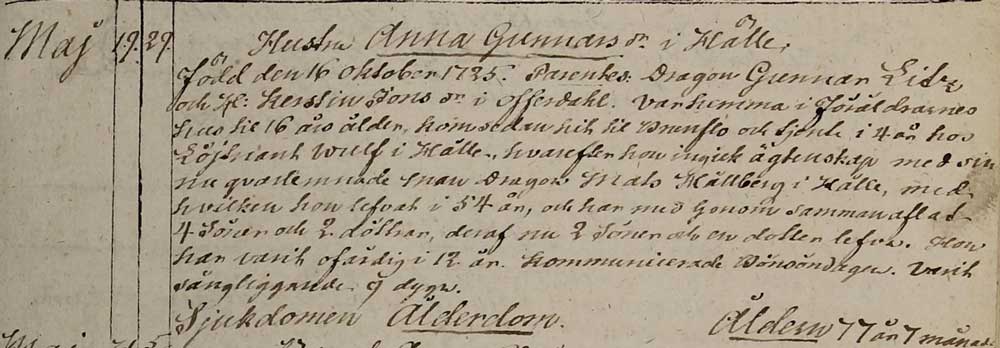 Maj 19. 29. Hustru Anna Gunnars dr i Hålle,
Född den 16 oktober 1735. Parentes: Dragon Gunnar Litz
och H: Kerstin Jons dr i offerdahl. Var hemma i Föräldrarnes
hus til 16 års ålder, kom sedan hit til Brunflo och tjente i 4 år hos
Löjtnant Wulf i Hålle, hvarefter hon ingick ägtenskap med sin
nu qvarlemnade man Dragon Mats Hållberg i Hålle, med
hvilken hon lefvat i 54 år, och har med honom sammanaflat
4 Söner och 2 döttrar, deraf nu 2 Söner och en dotter lefva. Hon
har varit ofärdig i 12 år. Kommunicerade Bönsöndagen. Varit
sängliggande 9 dygn.
Sjukdomen Ålderdom. Åldern 77 år 7 månad